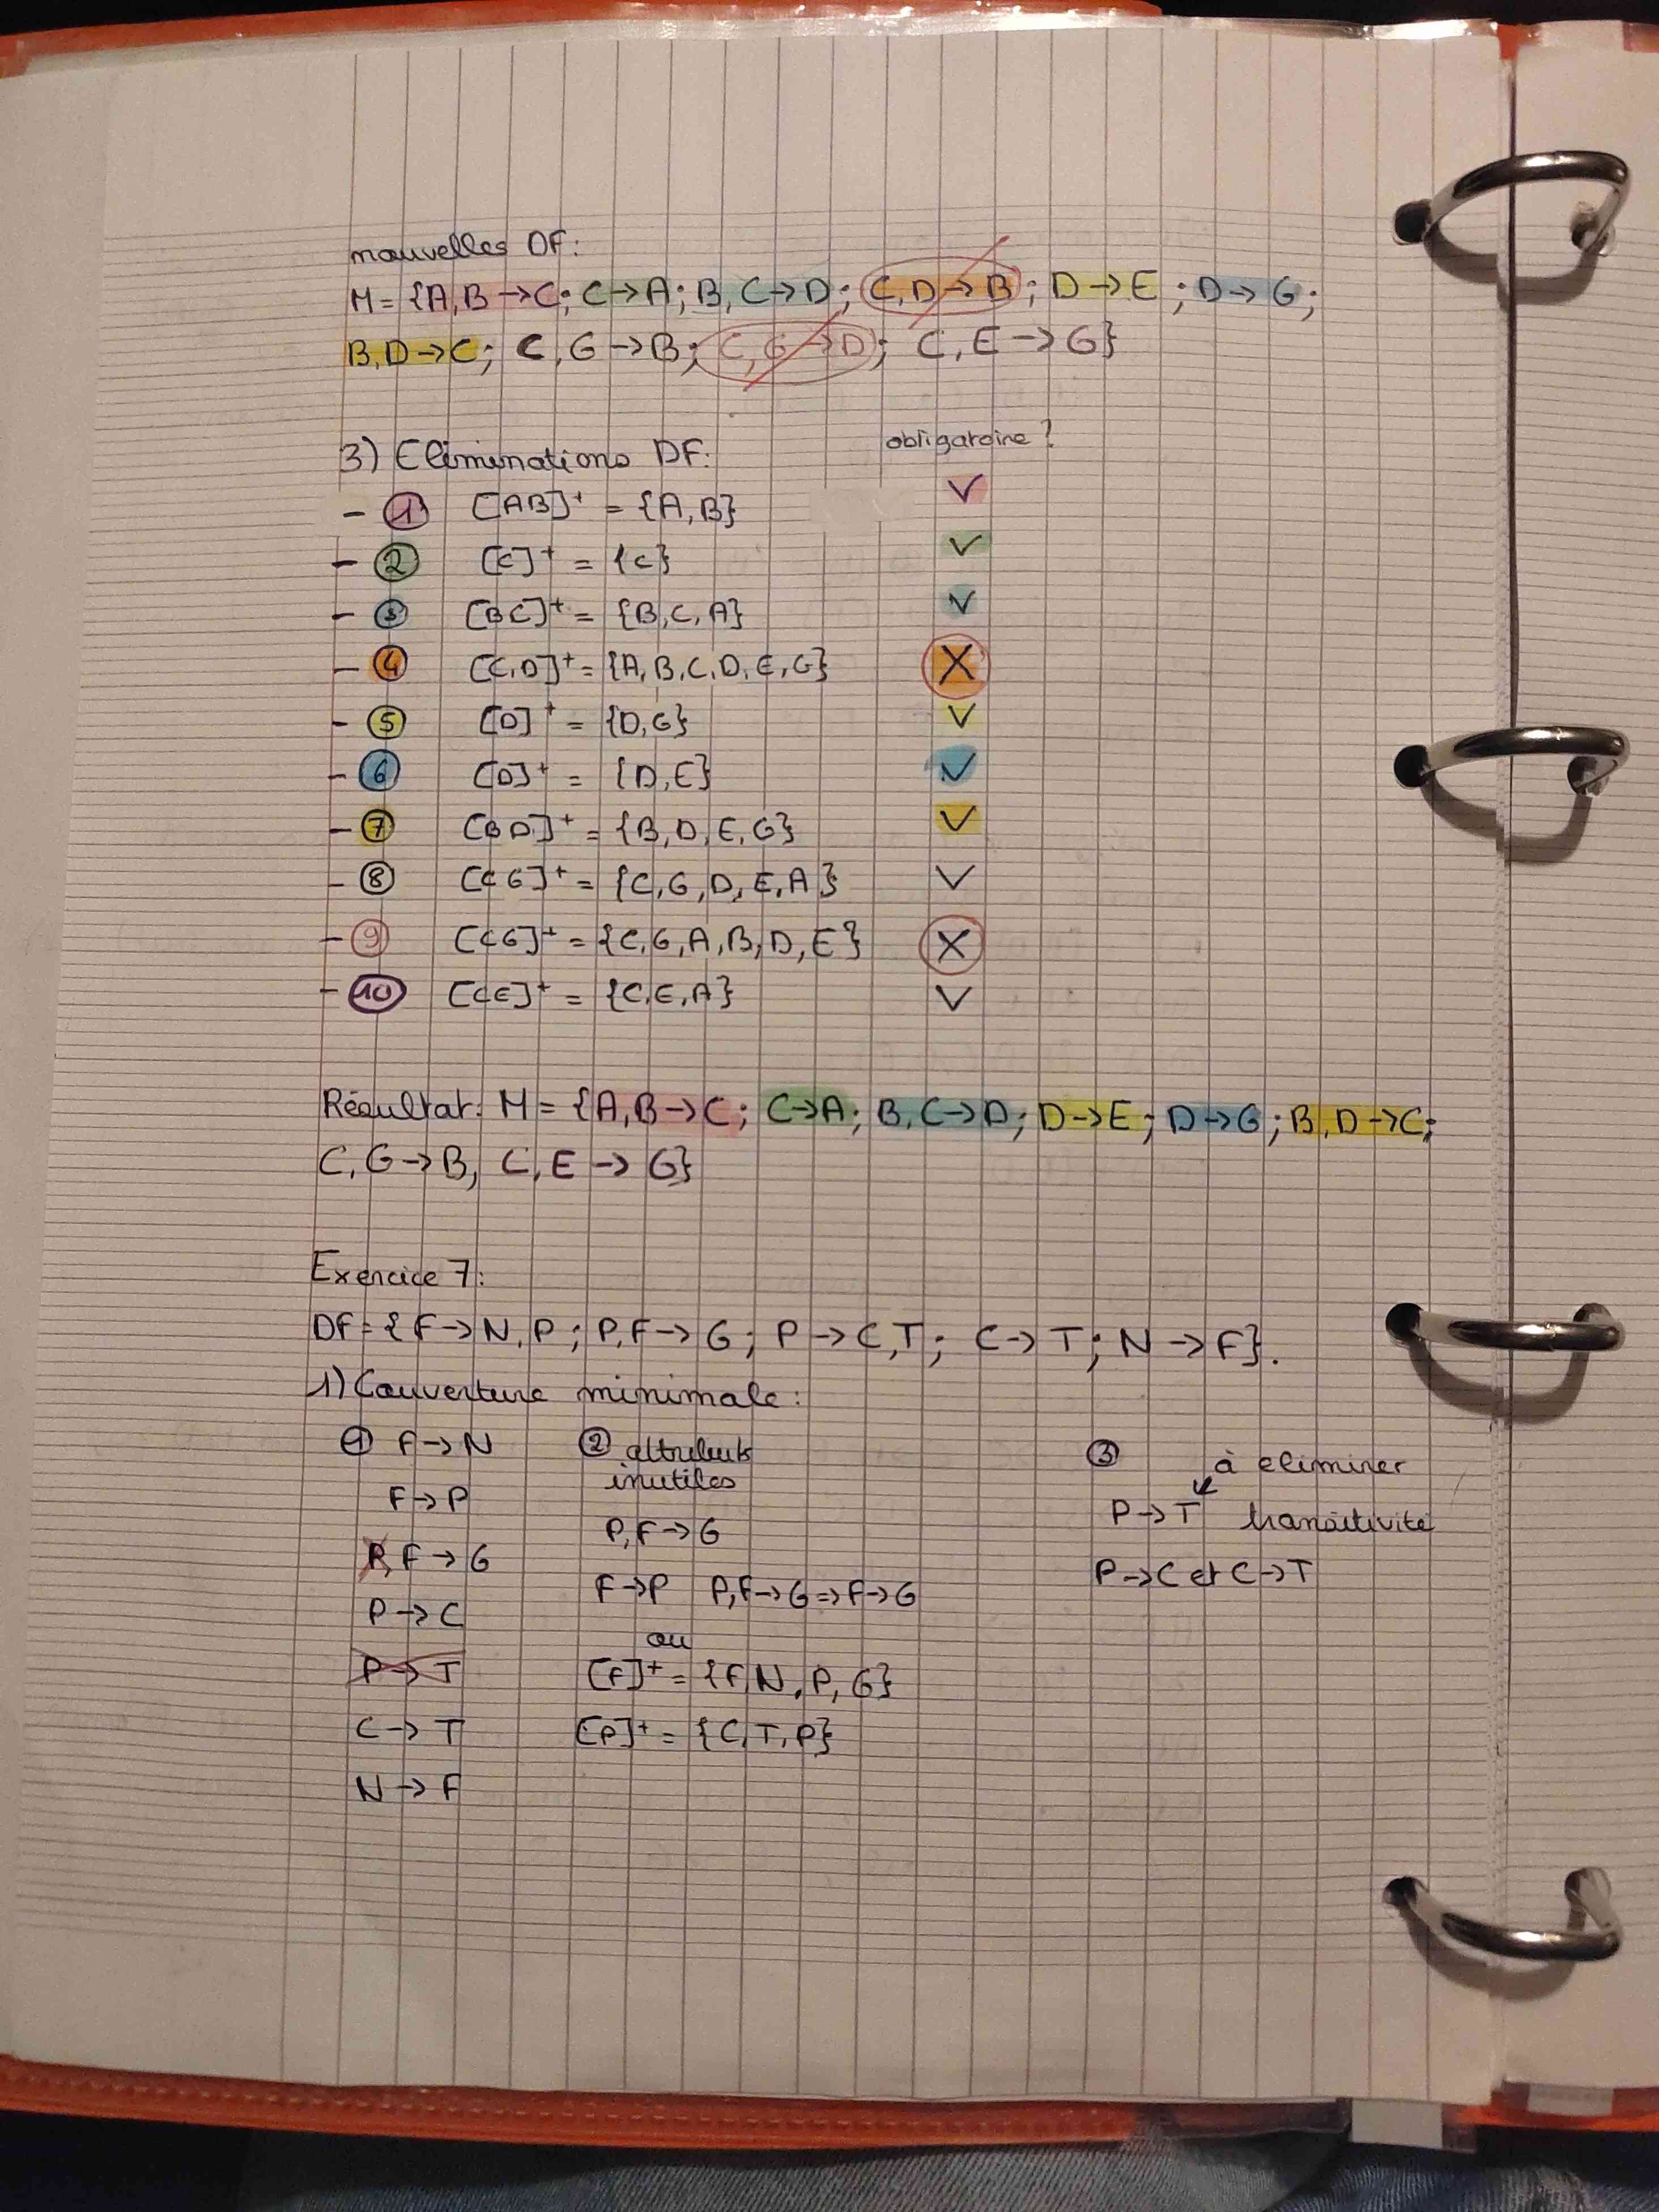 nouvelles DF:
M = {A,B → C; C → A; B,C → D; C,D → B; D → E; D → G;
B,D → C; C,G → B; C,G → D; C,E → G}
3) Eliminations DF: obligatoire ?
- ① [AB]⁺ = {A,B} V
- ② [C]⁺ = {C} V
- ③ [BC]⁺ = {B,C,A} V
- ④ [C,D]⁺ = {A,B,C,D,E,G} X
- ⑤ [D]⁺ = {D,G} V
- ⑥ [D]⁺ = {D,E} V
- ⑦ [BD]⁺ = {B,D,E,G} V
- ⑧ [CG]⁺ = {C,G,D,E,A} V
- ⑨ [CG]⁺ = {C,G,A,B,D,E} X
- ⑩ [CE]⁺ = {C,E,A} V
Résultat: M = {A,B → C; C → A; B,C → D; D → E; D → G; B,D → C;
C,G → B, C,E → G}
Exercice 7:
DF = {F → N,P; P,F → G; P → C,T; C → T; N → F}.
1) Couverture minimale:
① F → N
F → P
P,F → G
P → C
P → T
C → T
N → F
② attributs
inutiles
P,F → G
F → P P,F → G => F → G
ou
[F]⁺ = {F,N,P,G}
[P]⁺ = {C,T,P}
③
à eliminer
P → T transitivité
P → C et C → T